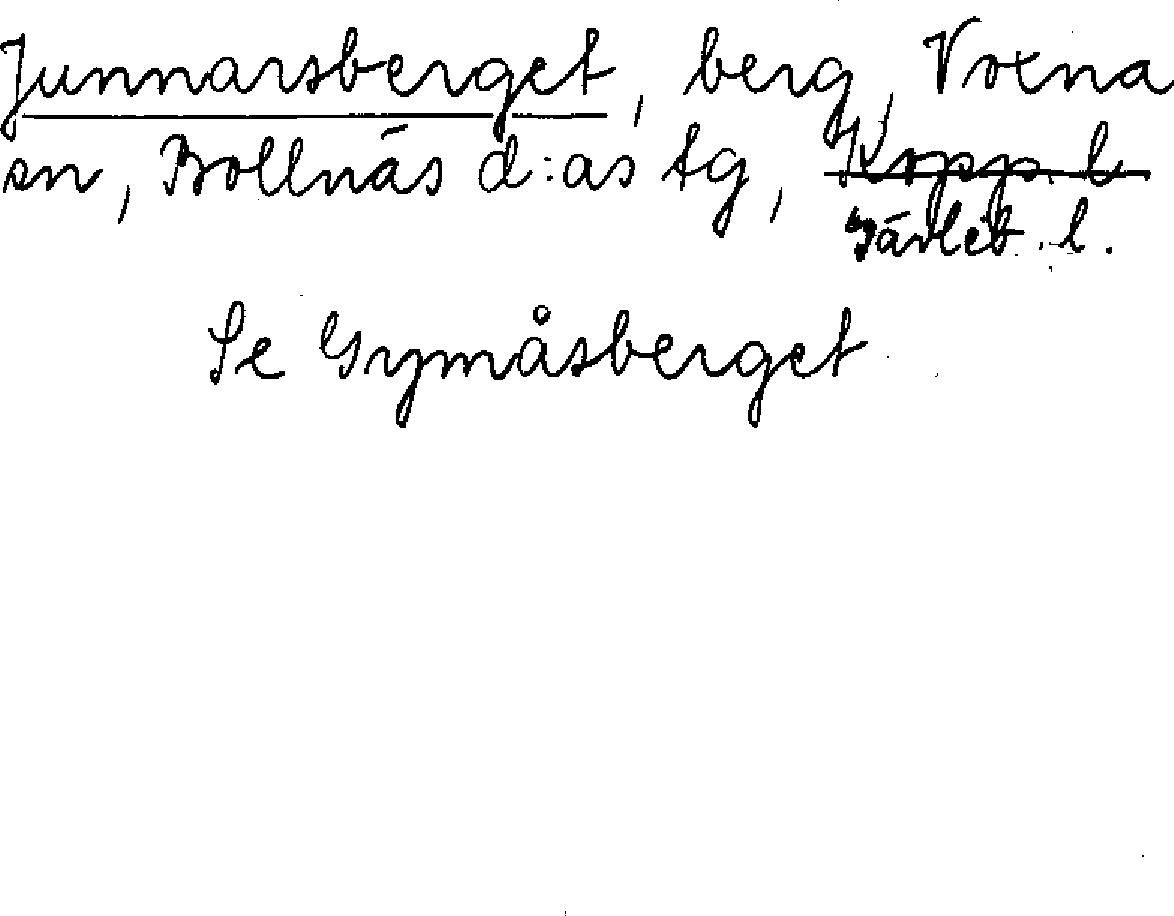 Junnarsberget, berg, Voxna
sn, Bollnäs d:as tg, Kopp. l
Gävleb. l.
Se Grymåsberget